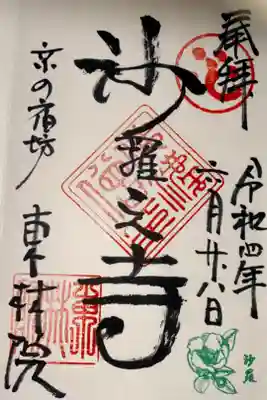 奉拝
令和四年
六月廿八日
沙羅之寺
京の宿坊
東林院
沙羅